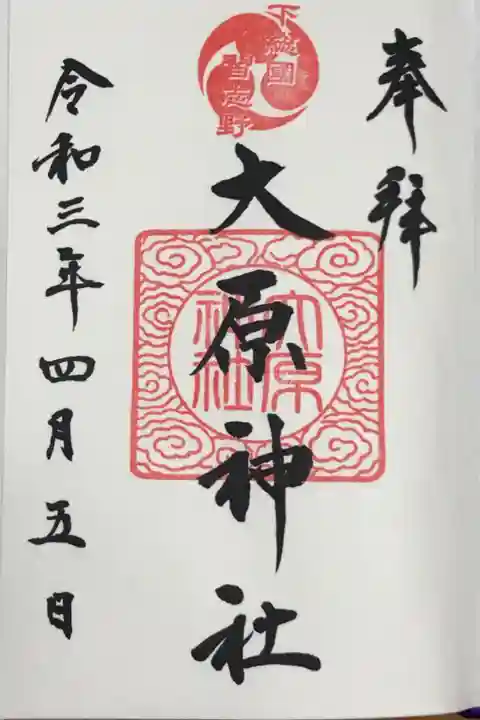 奉拝
下総國
習志野
大原神社
大原
神社
令和三年四月五日